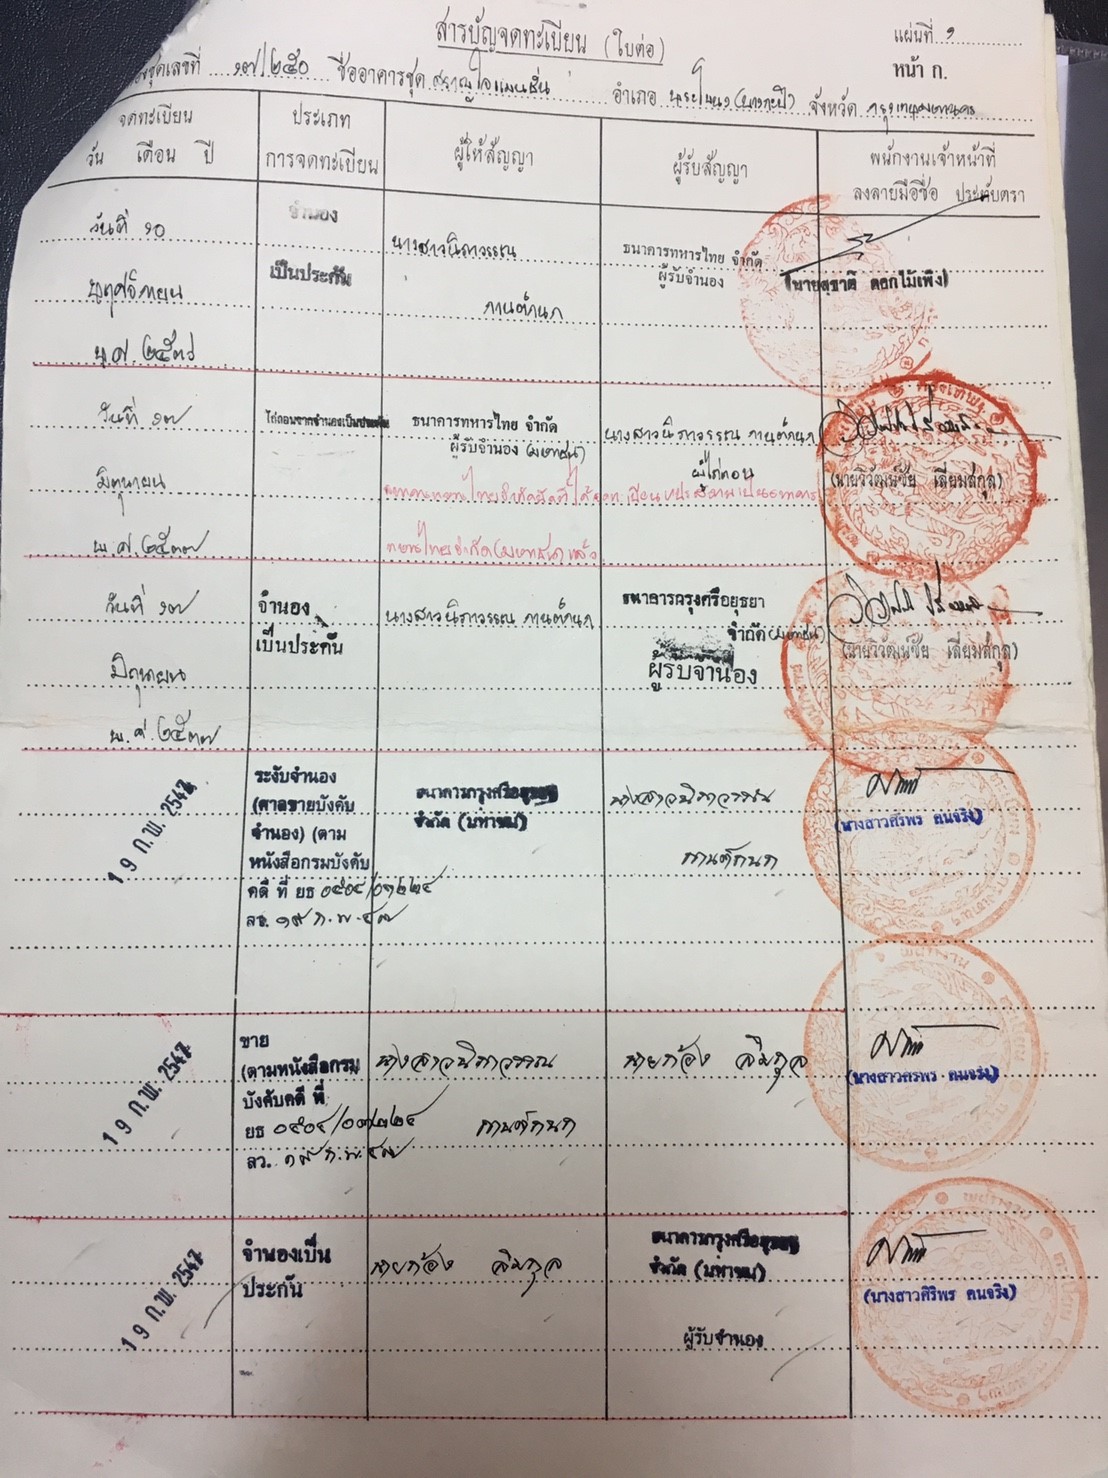 สารบัญจดทะเบียน (ใบต่อ)
แผ่นที่ ๑
หน้า ก.
ชุดเลขที่ ๑๗/๒๕๐ ชื่ออาคารชุด อำเภอ พระโขนง (บางกะปิ) จังหวัด กรุงเทพมหานคร
จดทะเบียน
วัน เดือน ปี
ประเภท
การจดทะเบียน
ผู้ให้สัญญา
ผู้รับสัญญา
พนักงานเจ้าหน้าที่
ลงลายมือชื่อ ประทับตรา
วันที่ ๑๐
พฤศจิกายน
พ.ศ. ๒๕๓๖
จำนอง
เป็นประกัน
นางสาวนิภาวรรณ
กานต์กนก
ธนาคารทหารไทย จำกัด
ผู้รับจำนอง
(นายสุชาติ ดอกไม้เพ็ง)
วันที่ ๑๗
มิถุนายน
พ.ศ. ๒๕๓๗
ไถ่ถอนจากจำนองเป็นประกัน
ธนาคารทหารไทย จำกัด
ผู้รับจำนอง (มหาชน)
นางสาวนิภาวรรณ กานต์กนก
ผู้ไถ่ถอน
(นายวิวัฒน์ชัย เลี่ยมสกุล)
ธนาคารทหารไทยจำกัด ได้จดทะเบียนแปรสภาพเป็นธนาคาร
ทหารไทยจำกัด (มหาชน) แล้ว
วันที่ ๑๗
มิถุนายน
พ.ศ. ๒๕๓๗
จำนอง
เป็นประกัน
นางสาวนิภาวรรณ กานต์กนก
ธนาคารกรุงศรีอยุธยา
จำกัด (มหาชน)
ผู้รับจำนอง
(นายวิวัฒน์ชัย เลี่ยมสกุล)
19 ก.พ. 2547
ระงับจำนอง
(ศาลขายบังคับ
จำนอง) (ตาม
หนังสือกรมบังคับ
คดี ที่ ยธ ๐๕๐๔/๐๑๒๒๔
ลว. ๑๙ ก.พ. ๔๗
ธนาคารกรุงศรีอยุธยา
จำกัด (มหาชน)
นางสาวนิภาวรรณ
กานต์กนก
(นางสาวศิริพร คนจริง)
19 ก.พ. 2547
ขาย
(ตามหนังสือกรม
บังคับคดี ที่
ยธ ๐๕๐๔/
ลว. ๑๙ ก.พ. ๔๗
นางสาวนิภาวรรณ
กานต์กนก
นายก้อง ลิมกุล
(นางสาวศิริพร คนจริง)
19 ก.พ. 2547
จำนองเป็น
ประกัน
นายก้อง ลิมกุล
ธนาคารกรุงศรีอยุธยา
จำกัด (มหาชน)
ผู้รับจำนอง
(นางสาวศิริพร คนจริง)